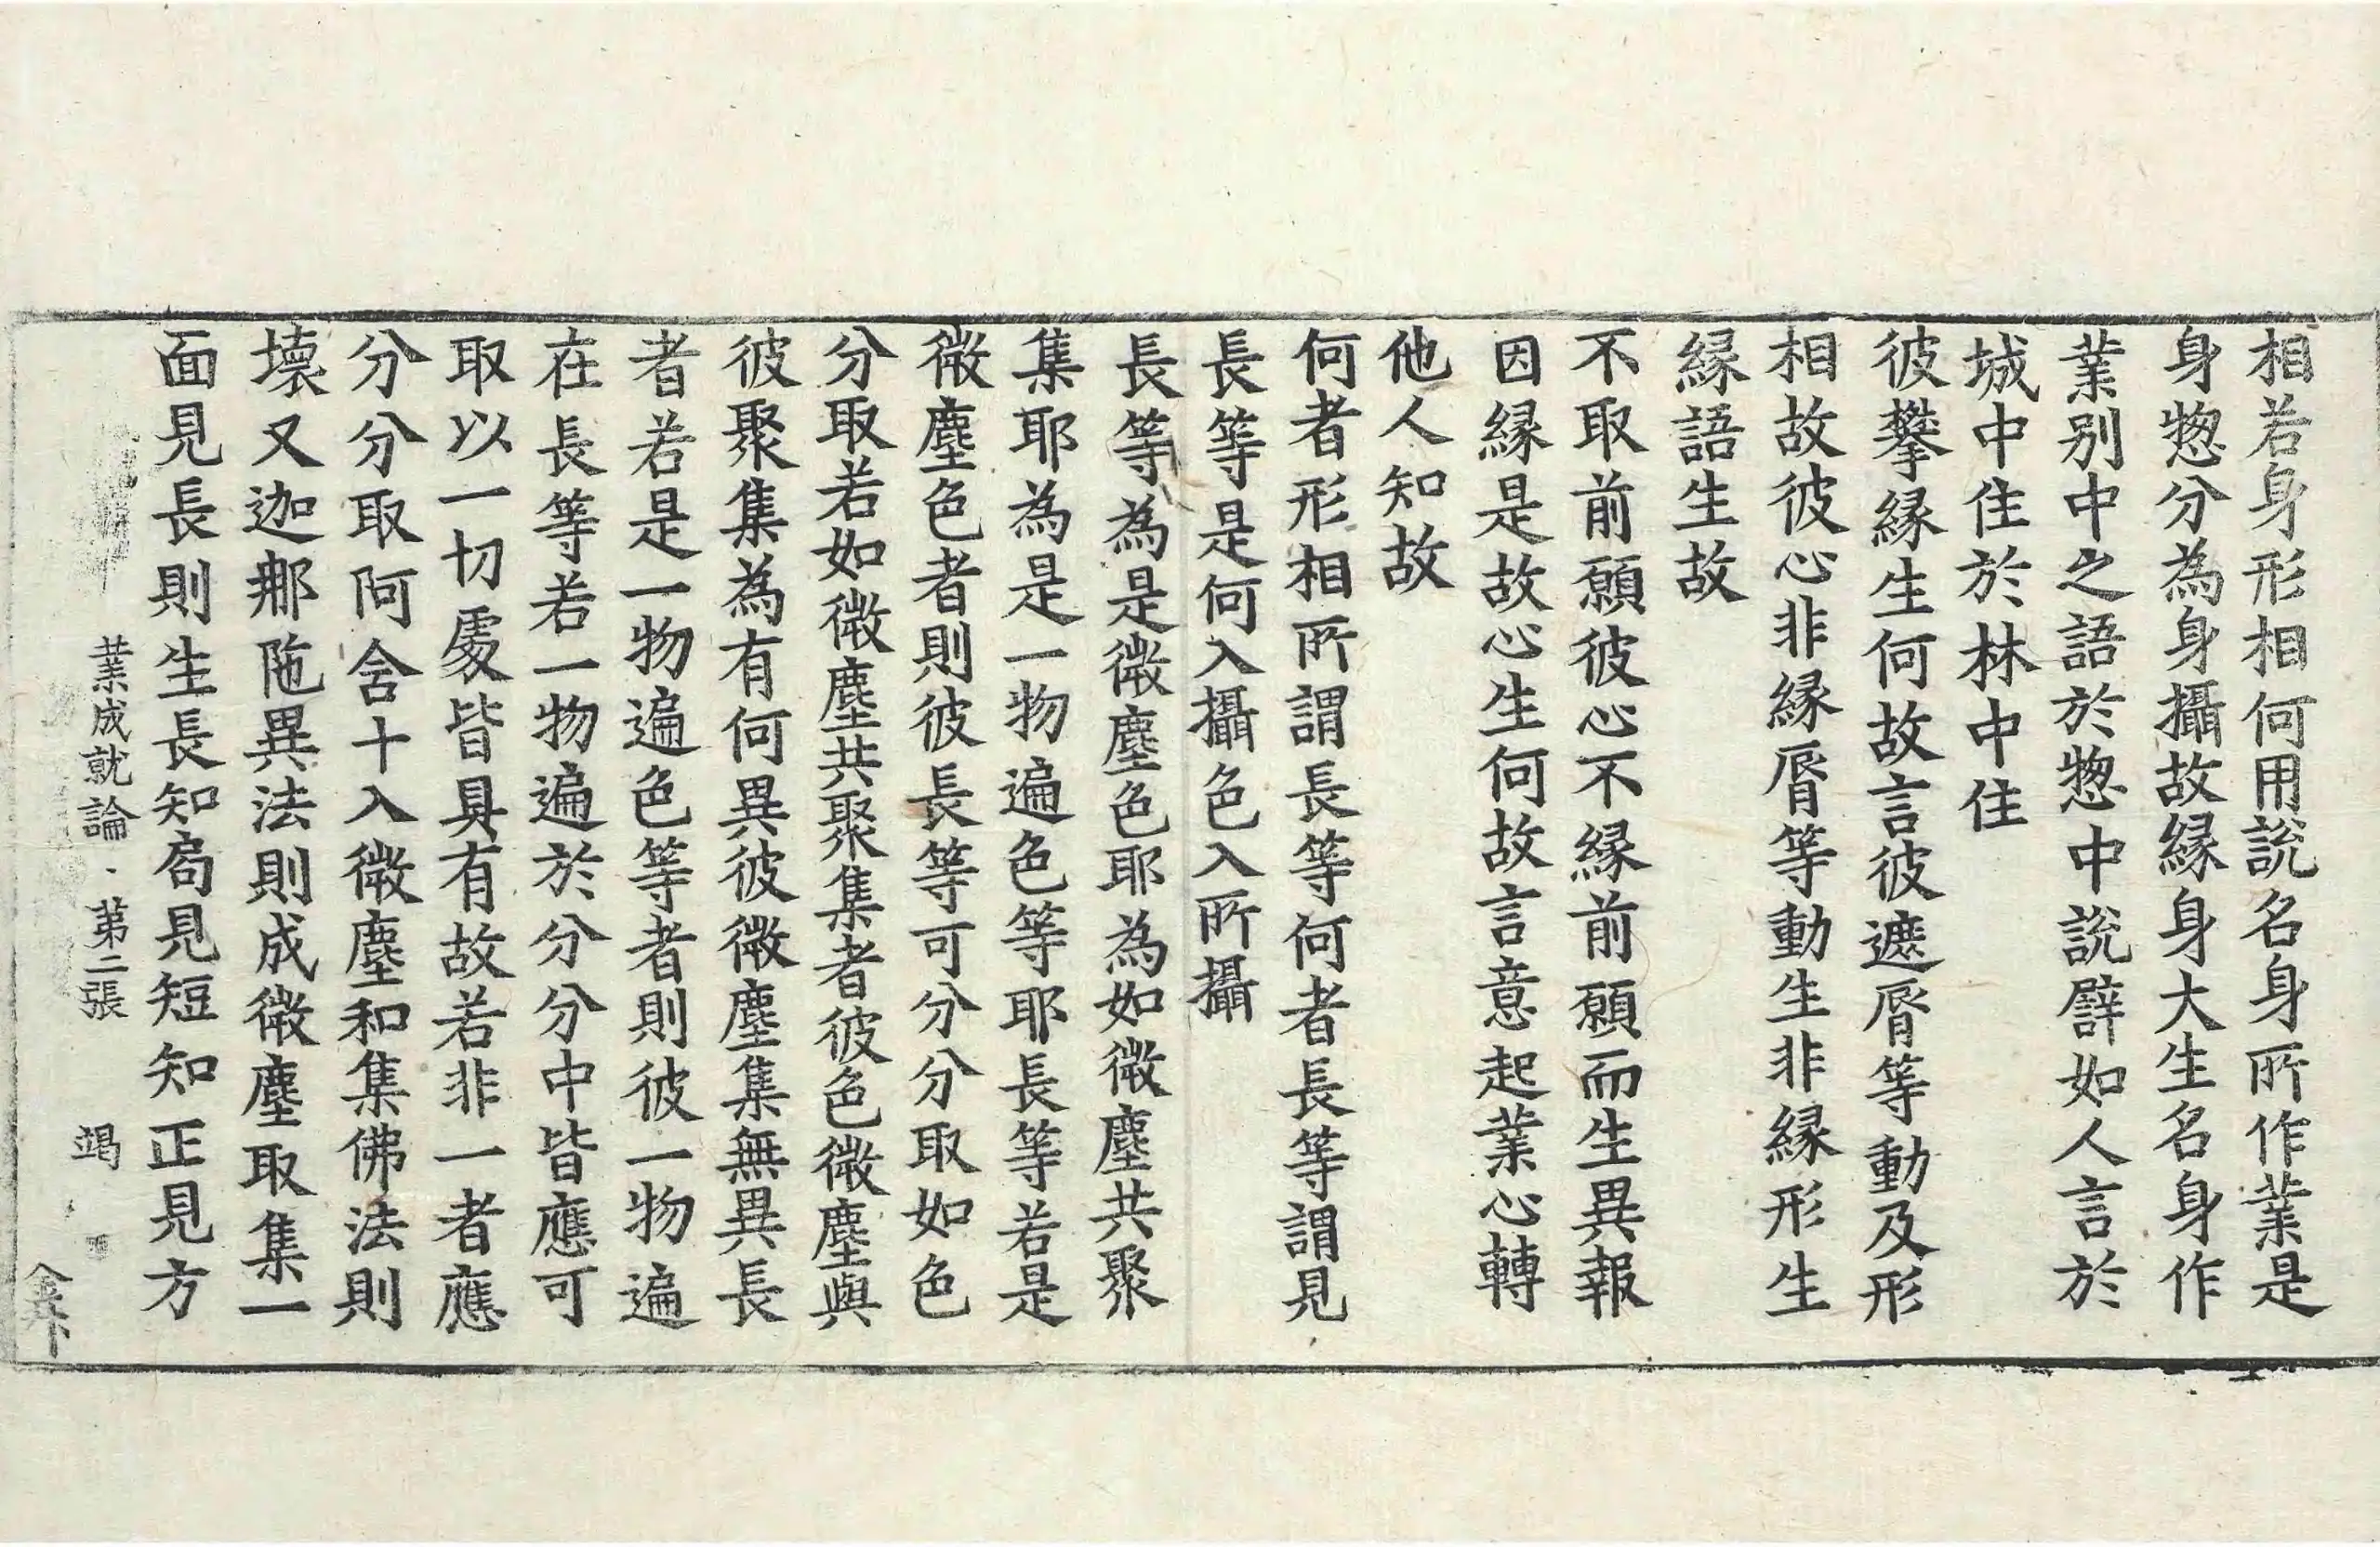 相若身形相何用說名身所作業是
身惣分為身攝故縁身大生名身作
業别中之語於惣中說譬如人言於
城中住於林中住
彼攀縁生何故言彼遮脣等動及形
相故彼心非縁脣等動生非縁形生
縁語生故
不取前願彼心不縁前願而生異報
因縁是故心生何故言意起業心轉
他人知故
何者形相所謂長等何者長等謂見
長等是何入攝色入所攝
長等為是微塵色耶為如微塵共聚
集耶為是一物遍色等耶長等若是
微塵色者則彼長等可分分取如色
分取若如微塵共聚集者彼色微塵與
彼聚集為有何異彼微塵集無異長
者若是一物遍色等者則彼一物遍
在長等若一物遍於分分中皆應可
取以一切處皆具有故若非一者應
分分取阿含十入微塵和集佛法則
壞又迦那陁異法則成微塵取集一
面見長則生長知扃見短知正見方
業成就論 第二張 竭